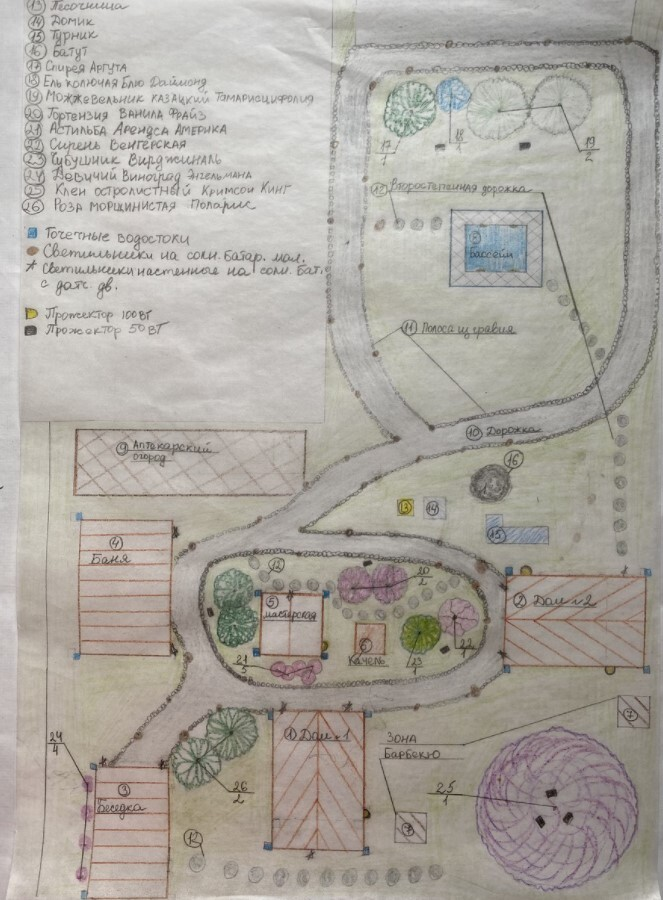 13 Песочница
14 Домик
15 Турник
16 Батут
17 Спирея Аргута
18 Ель колючая Блю Даймонд
19 Можжевельник казацкий Тамарисцифолия
20 Гортензия Ванила Фрайз
21 Астильба Арендса Америка
22 Сирень Венгерская
23 Чубушник Вирджиналь
24 Девичий Виноград Энгельмана
25 Клен остролистный Кримсон Кинг
26 Роза морщинистая Поларис
Точечные водостоки
Светильники на солн. батар. мал.
Светильники настенные на солн. бат.
с датс. дв.
Прожектор 100вт
Прожектор 50вт
17
1
18
1
19
2
12 Второстепенная дорожка
8
Бассейн
11 Полоса из гравия
10 Дорожка
9 Аптекарский
огород
16
13
14
15
4
Баня
12
20
2
5
мастерская
6
Качель
23
1
22
1
21
5
2 Дом №2
7
24
4
1 Дом №1
Зона
Барбекю
3
Беседка
26
2
25
1
7
12